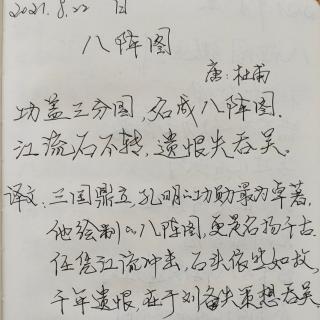 2021.8.22 日
八阵图
唐:杜甫
功盖三分国,名成八阵图.
江流石不转,遗恨失吞吴.
译文:三国鼎立,孔明的功勋最为卓著,
他绘制的八阵图,更是名扬千古.
任凭江流冲击,石头依然如故,
千年遗恨,在于刘备失策想吞吴